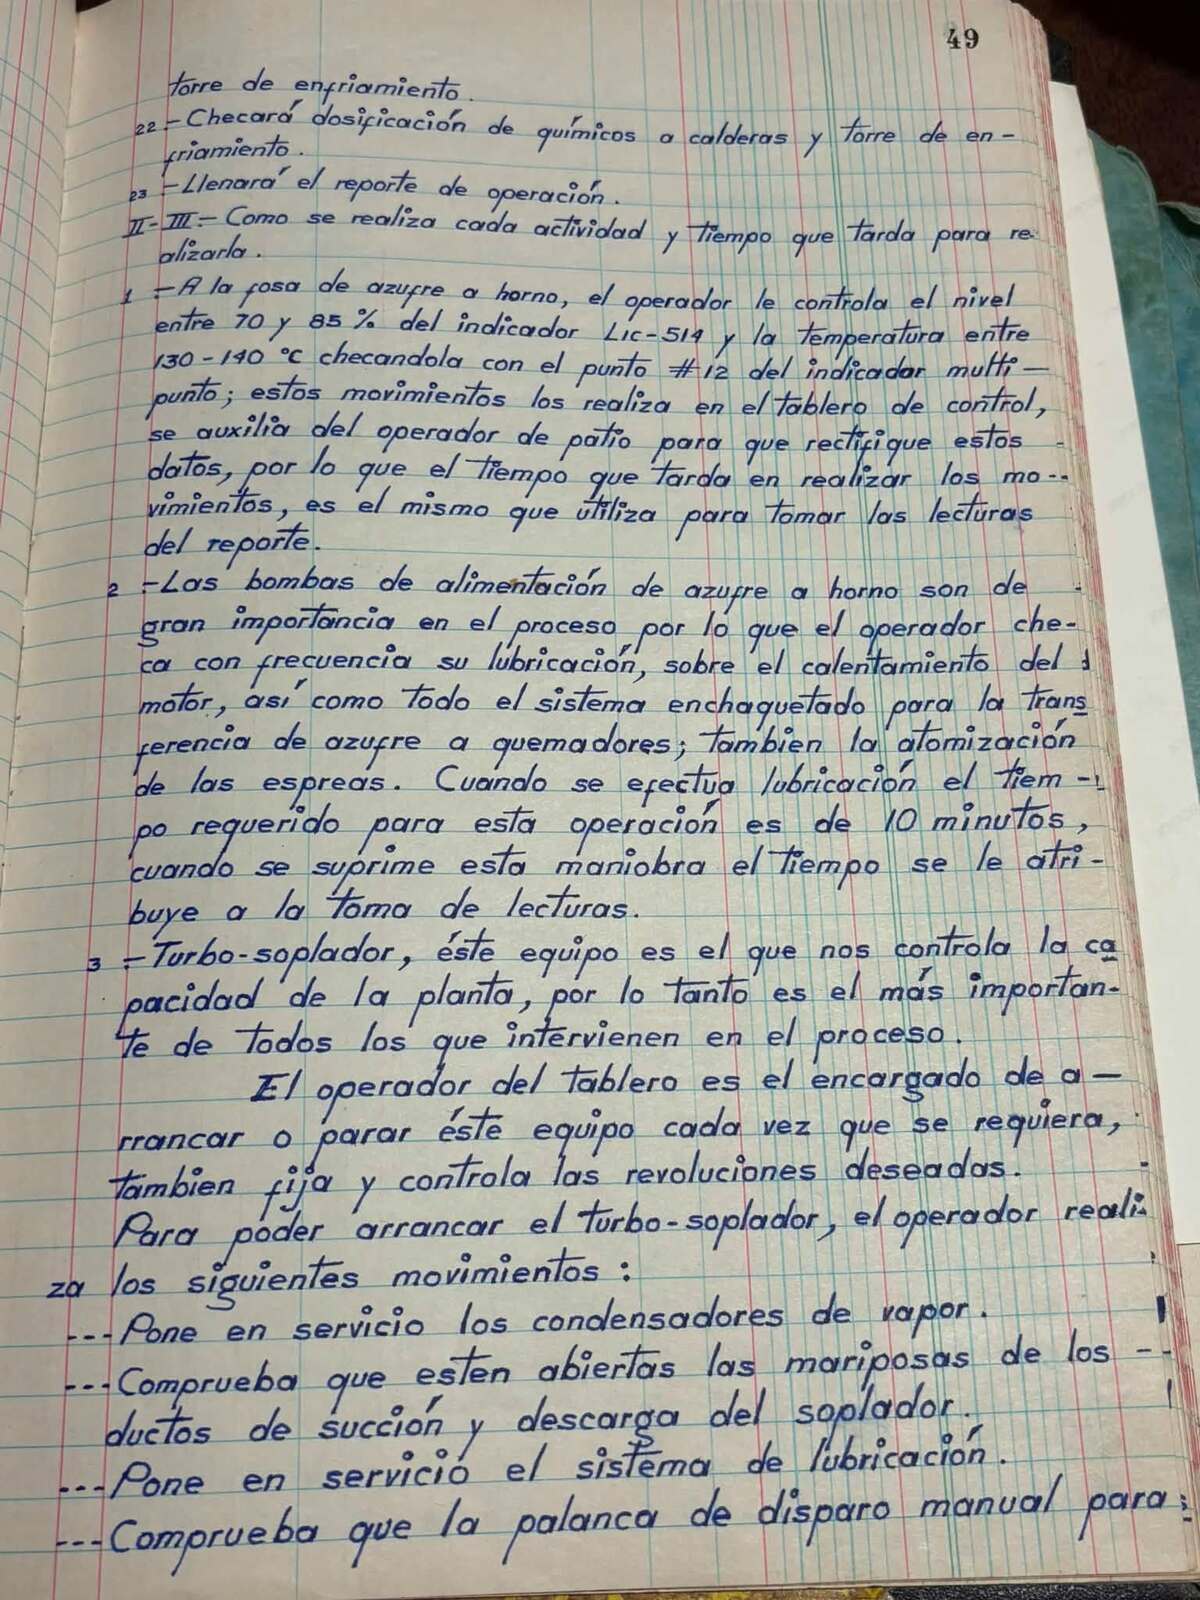 49
torre de enfriamiento.
22 - Checará dosificación de químicos a calderas y torre de en-
friamiento.
23 - Llenará el reporte de operación.
II-III.- Como se realiza cada actividad y tiempo que tarda para re-
alizarla.
1 .- A la fosa de azufre a horno, el operador le controla el nivel
entre 70 y 85 % del indicador Lic-514 y la temperatura entre
130-140 °C checandola con el punto #12 del indicador multi-
punto; estos movimientos los realiza en el tablero de control,
se auxilia del operador de patio para que rectifique estos -
datos, por lo que el tiempo que tarda en realizar los mo--
vimientos, es el mismo que utiliza para tomar las lecturas
del reporte.
2 .- Las bombas de alimentación de azufre a horno son de -
gran importancia en el proceso por lo que el operador che-
ca con frecuencia su lubricación, sobre el calentamiento del
motor, así como todo el sistema enchaquetado para la trans
ferencia de azufre a quemadores; tambien la atomización
de las espreas. Cuando se efectua lubricación el tiem-
po requerido para esta operación es de 10 minutos,
cuando se suprime esta maniobra el tiempo se le atri-
buye a la toma de lecturas.
3 .- Turbo-soplador, éste equipo es el que nos controla la ca
pacidad de la planta, por lo tanto es el más importan-
te de todos los que intervienen en el proceso.
El operador del tablero es el encargado de a-
rrancar o parar éste equipo cada vez que se requiera,
tambien fija y controla las revoluciones deseadas. -
Para poder arrancar el turbo-soplador, el operador reali-
za los siguientes movimientos:
--- Pone en servicio los condensadores de vapor.
--- Comprueba que esten abiertas las mariposas de los --
ductos de succión y descarga del soplador.
--- Pone en servicio el sistema de lubricación.
--- Comprueba que la palanca de disparo manual para